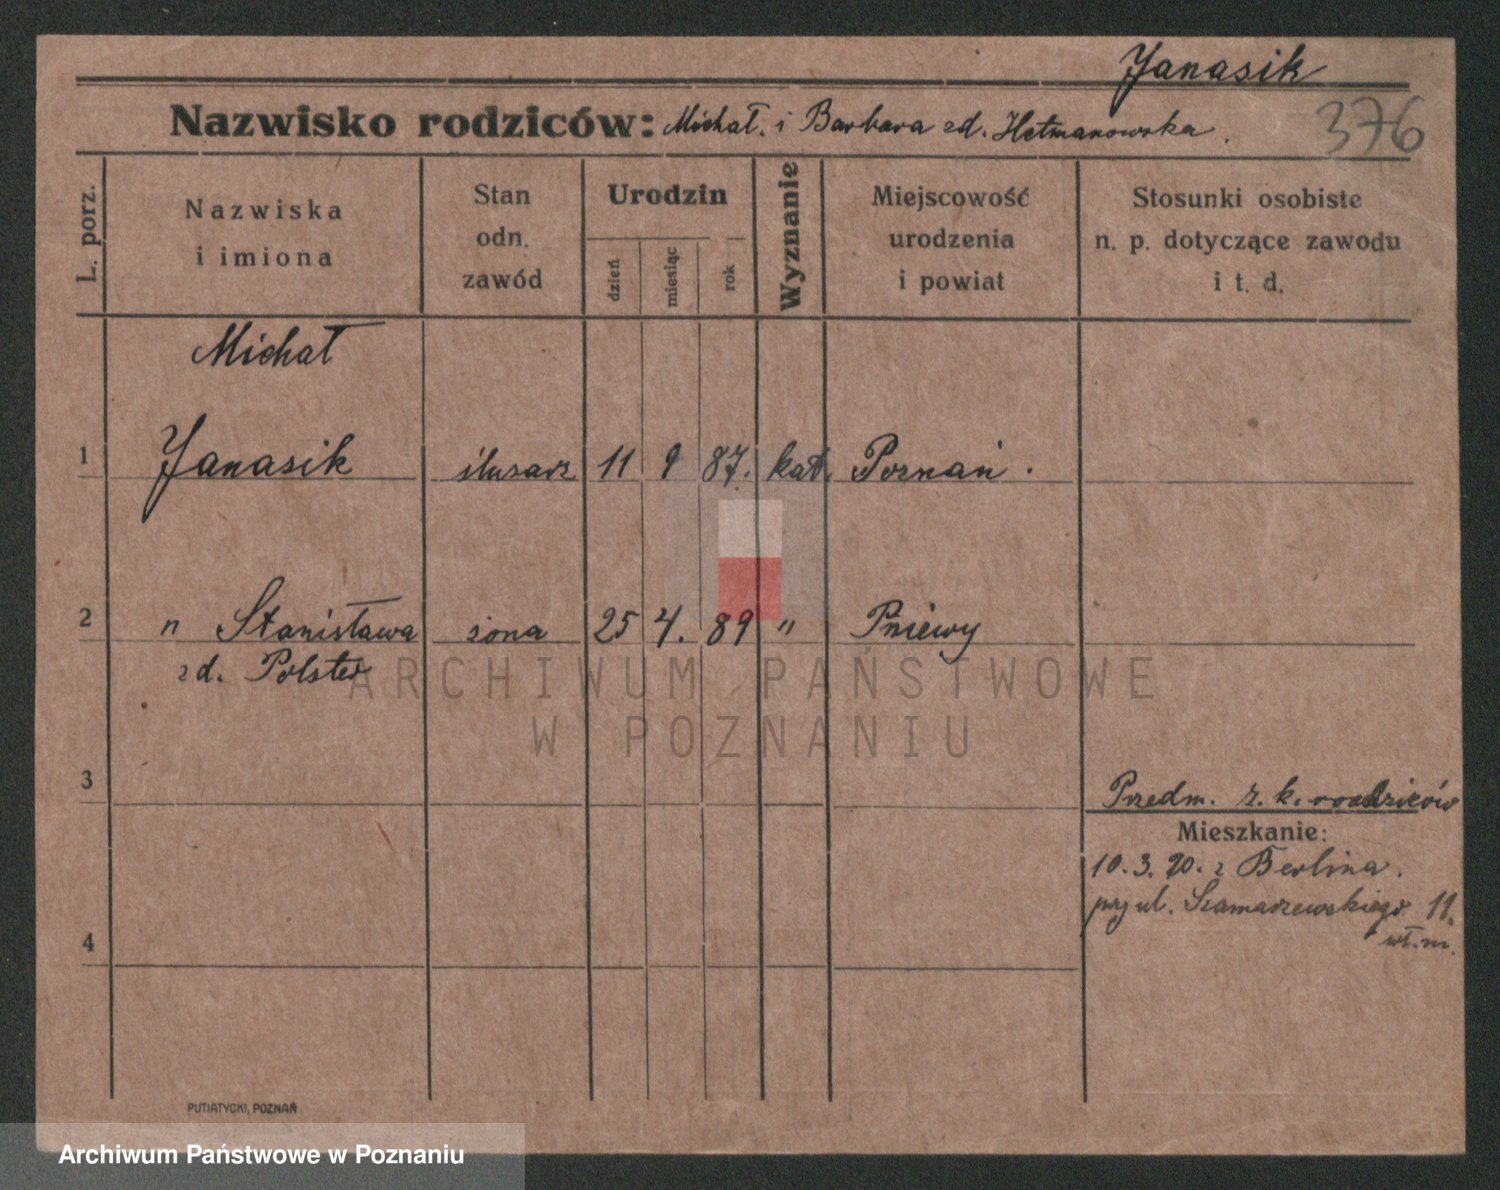 Janasik
Nazwisko rodziców: Michał. i Barbara zd. Hetmanowska.
376
L. porz.
Nazwiska
i imiona
Stan
odn.
zawód
Urodzin
dzień
miesiąc
rok
Wyznanie
Miejscowość
urodzenia
i powiat
Stosunki osobiste
n. p. dotyczące zawodu
i t. d.
Michał
1 Janasik ślusarz 11 9 87. kat. Poznań.
2 n Stanisława żona 25 4. 89 " Pniewy
zd. Polster
3
Przedm. r. k. rodziców
Mieszkanie:
10. 3. 20. z Berlina.
przy ul. Szamarzewskiego 11.
wł. m.
4
PUTIATYCKI, POZNAŃ
ARCHIWUM PAŃSTWOWE
W POZNANIU
Archiwum Państwowe w Poznaniu